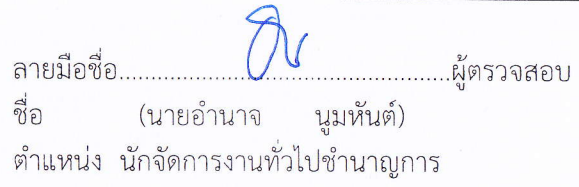 ลายมือชื่อ................................................ผู้ตรวจสอบ
ชื่อ (นายอำนาจ นูมหันต์)
ตำแหน่ง นักจัดการงานทั่วไปชำนาญการ